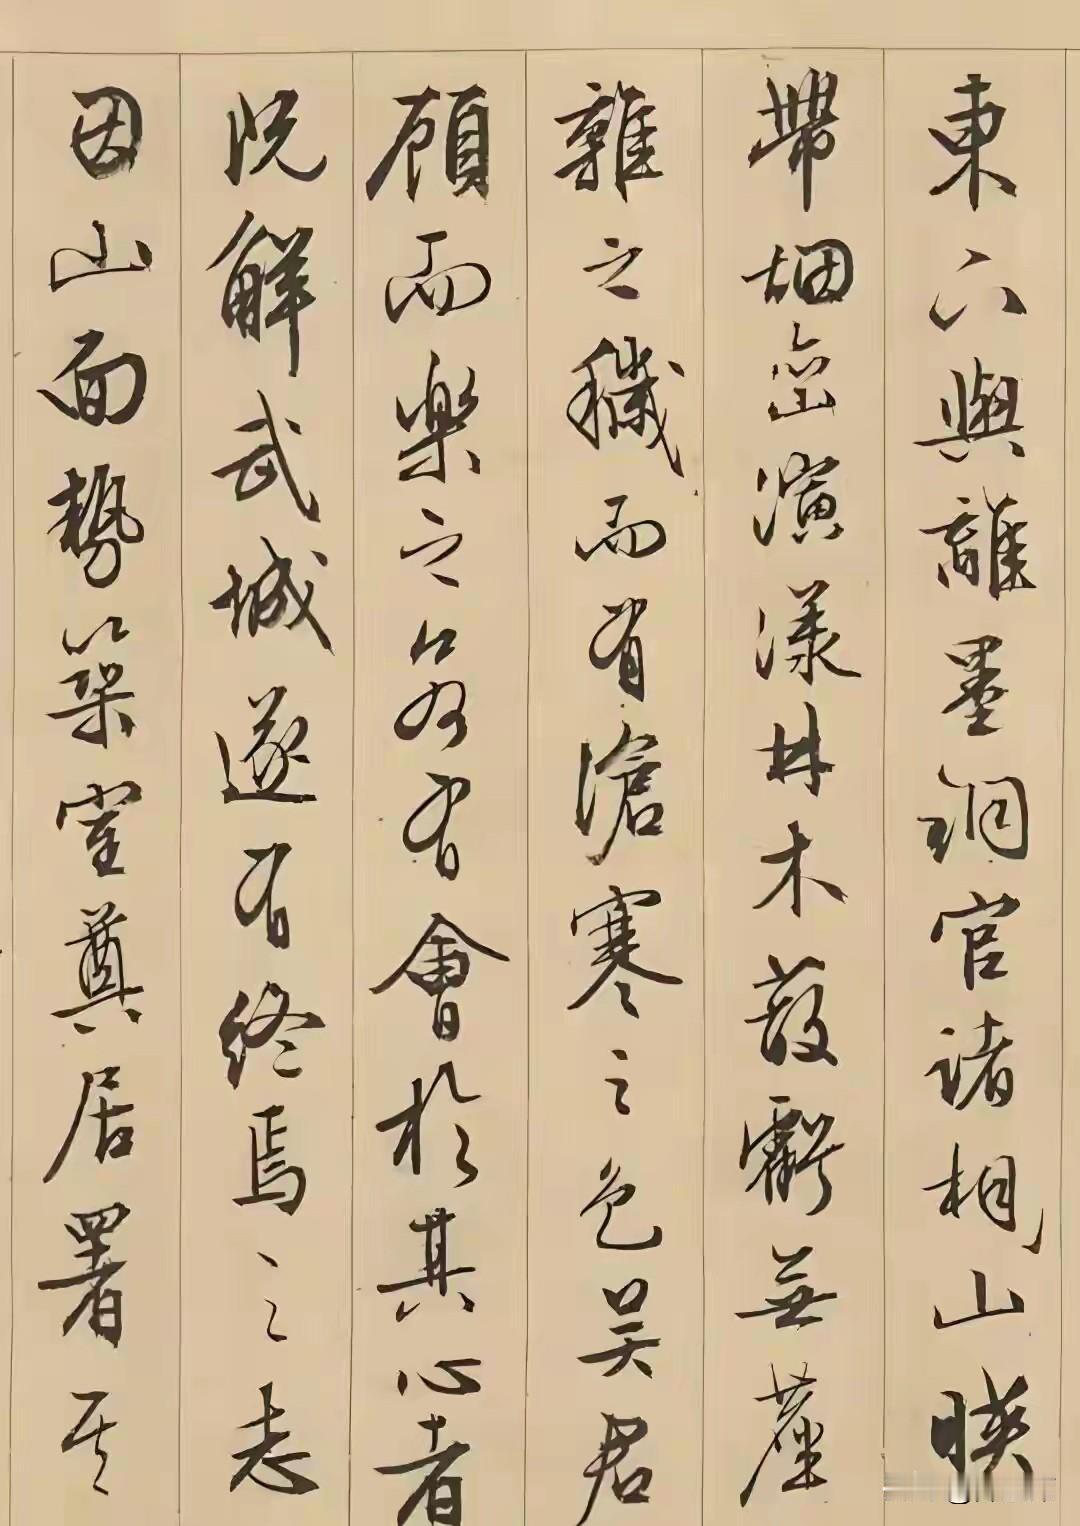 東下與離墨銅官諸相山暎
帶烟巒演漾林木蔽虧無塵
雜之穢而有滄寒之色吳君
顧而樂之若有會於其心者
既解武城遂有終焉之志
因山面勢築室奠居署其